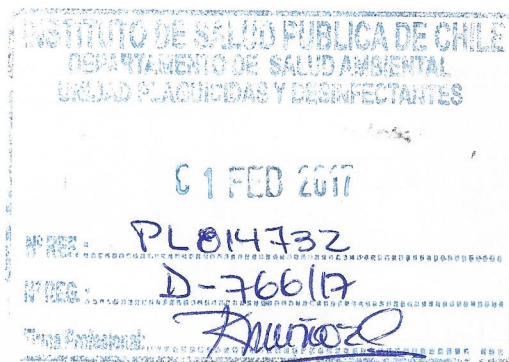 INSTITUTO DE SALUD PUBLICA DE CHILE
DEPARTAMENTO DE SALUD AMBIENTAL
UNIDAD PLAGUICIDAS Y DESINFECTANTES
01 FEB 2017
Nº REF.: PL814732
Nº REG.: D-766/17
Firma Profesional: